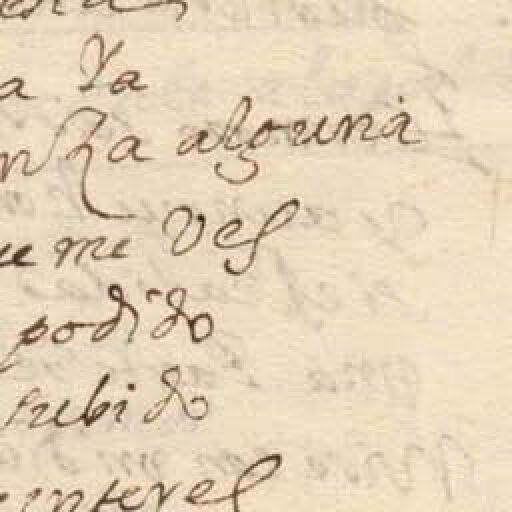 a Ya
nza alguna
ue me ves
podido
subido
interes